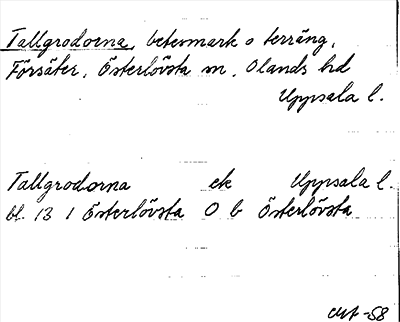 Tallgrodorna, betesmark o terräng,
Försäter, Österlövsta sn, Olands hd
Uppsala l.
Tallgrodorna ek Uppsala l.
bl. 13 I Österlövsta O b Österlövsta
-58